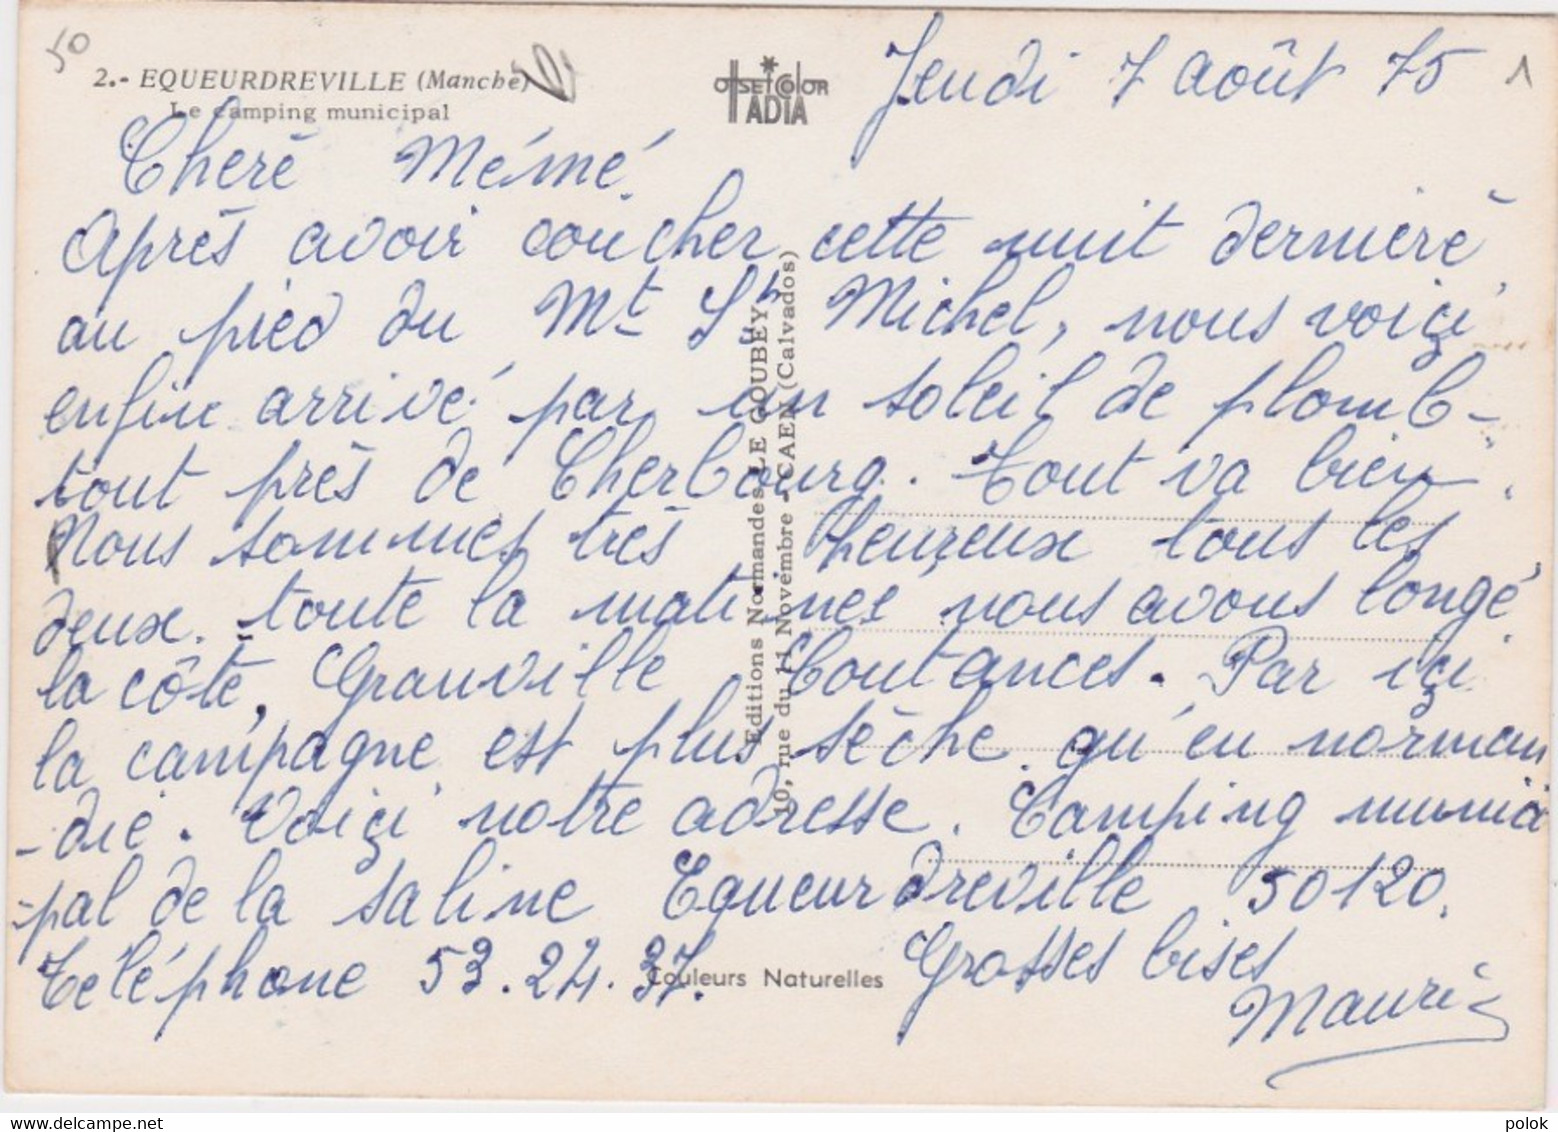 50
2.- EQUEURDREVILLE (Manche)
Le camping municipal
OffsetColor
IADIA
Jeudi 7 août 75
1
Cherè Mémé
Après avoir coucher cette nuit dernierè
au pied du Mt St Michel, nous voiçi
enfin arrivé par un soleil de plomb-
tout près de Cherbourg. Tout va bien.
Nous sommes très heureux tous les
deux. toute la matinée nous avons longé
la côte, Granville Coutances. Par içi
la campagne est plus sèche qu'en norman
-die. Voiçi notre adresse. Camping munici
-pal de la saline Equeurdreville 50120.
Téléphone 53.24.37. Grosses bises
Couleurs Naturelles
Editions Normandes LE GOUBEY
10, rue du 11 Novembre - CAEN (Calvados)
delcampe.net
polok